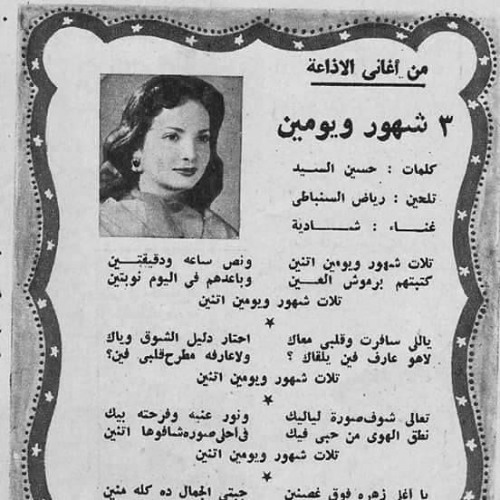 من أغانى الاذاعة
٣ شهور ويومين
كلمات : حسين السيد
تلحين : رياض السنباطى
غناء : شادية
تلات شهور ويومين اتنين ونص ساعه ودقيقتين
كتبتهم برموش العين وباعدهم فى اليوم نوبتين
تلات شهور ويومين اتنين
ياللى سافرت وقلبى معاك احتار دليل الشوق وياك
لاهو عارف فين يلقاك ؟ ولاعارفه مطرح قلبى فين؟
تلات شهور ويومين اتنين
تعالى شوف صورة لياليك ونور عنيه وفرحته بيك
نطق الهوى من حبى فيك فى أحلى صوره شافوها اتنين
تلات شهور ويومين اتنين
يا أغلى زهره فوق غصنين جبتى الجمال ده كله منين